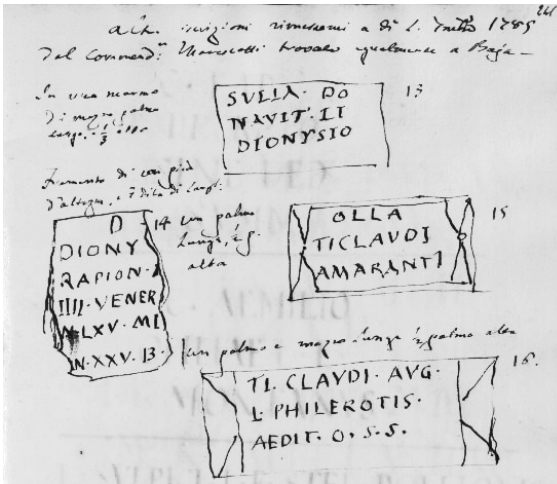 261
altre iscrizioni rimessemi a di 2. Luglio 1785
dal Commend. Marescotti trovate egualmente a Baja
In una marmo
di mezzo palmo
largo
SVLLA · DO 13
NAVIT · II
DIONYSIO
Framento di un piede
d'altezza, e 7 dita di
D 14 un palmo
DIONY
RAPION ·
IIII · VENER
N · LXV · MI
N · XXV · 13 ·
alta
OLLA 15
TICLAVDI
AMARANTI
un palmo e mezzo lunga ½ palmo alta
TI. CLAVDI · AVG · 16.
L · PHILEROTIS ·
AEDIT · O · S · S ·